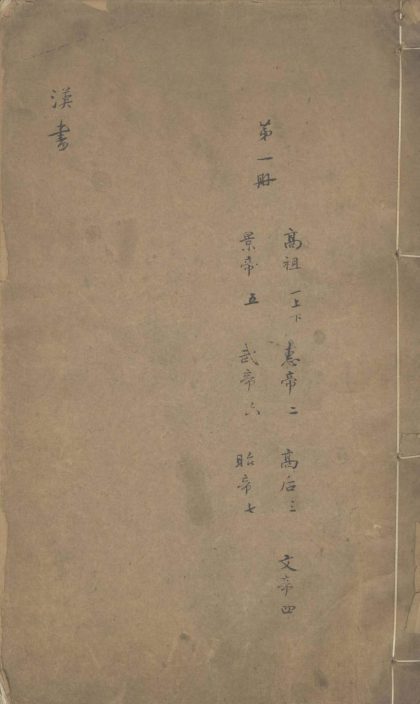 第一冊
高祖一上下 惠帝二 高后三 文帝四
景帝五 武帝六 昭帝七
漢書